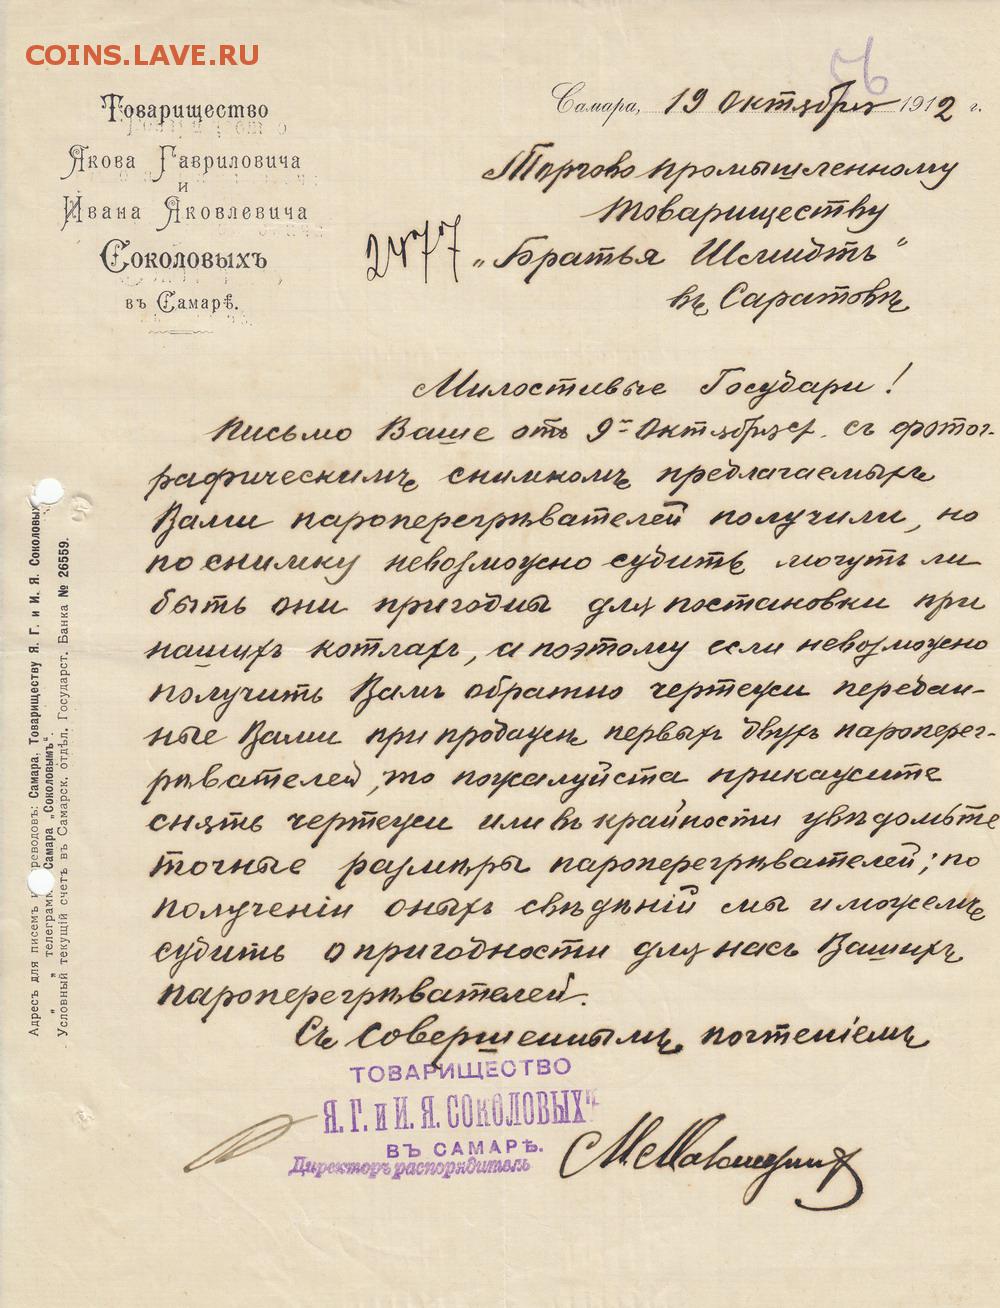 COINS.LAVE.RU
56
Товарищество
Якова Гавриловича
и
Ивана Яковлевича
Соколовыхъ
въ Самарѣ.
Самара, 19 Октября 1912 г.
Торгово промышленному
Товариществу
2477
„Братья Шмидтъ"
въ Саратовѣ
Милостивые Государи!
Письмо Ваше отъ 9го Октября с. съ фотог-
рафическимъ снимкомъ предлагаемыхъ
Вами пароперегрѣвателей получили, но
по снимку невозможно судить могутъ ли
быть они пригодны для постановки при
нашихъ котлахъ, а поэтому если невозможно
получить Вамъ обратно чертежи передан-
ные Вами при продажѣ первыхъ двухъ пароперег-
рѣвателей, то пожалуйста прикажите
снять чертежи или въ крайности увѣдомьте
точные размѣры пароперегрѣвателей; по
полученіи оныхъ свѣдѣній мы и можемъ
судить о пригодности для насъ Вашихъ
пароперегрѣвателей.
Съ совершеннымъ почтеніемъ
ТОВАРИЩЕСТВО
Я. Г. и И. Я. СОКОЛОВЫХЪ
ВЪ САМАРѢ.
Директоръ распорядитель
Адресъ для писемъ и переводовъ: Самара, Товариществу Я. Г. и И. Я. Соколовыхъ
„ „ телеграммъ Самара „Соколовымъ".
Условный текущій счетъ въ Самарск. отдѣл. Государст. Банка № 26559.